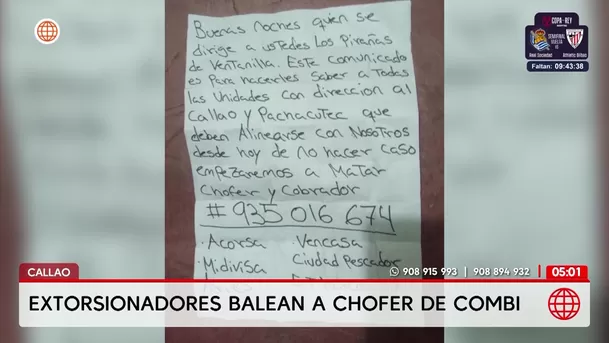 Buenas noches quien se
dirige a ustedes Los Pirañas
de Ventanilla. Este comunicado
es Para hacerles Saber a Todas
las Unidades con direccion al
Callao y Pachacutec que
deben Alinearse con Nosotros
desde hoy de no hacer caso
empezaremos a Matar
Chofer y Cobrador
# 935 016 674
· Acorsa · Vencasa
· Midivisa Ciudad Pescador
COPA DEL REY
SEMIFINAL
VUELTA
Real Sociedad Athletic Bilbao
Faltan: 09:43:38
CALLAO
908 915 993 | 908 894 932
05:01
EXTORSIONADORES BALEAN A CHOFER DE COMBI